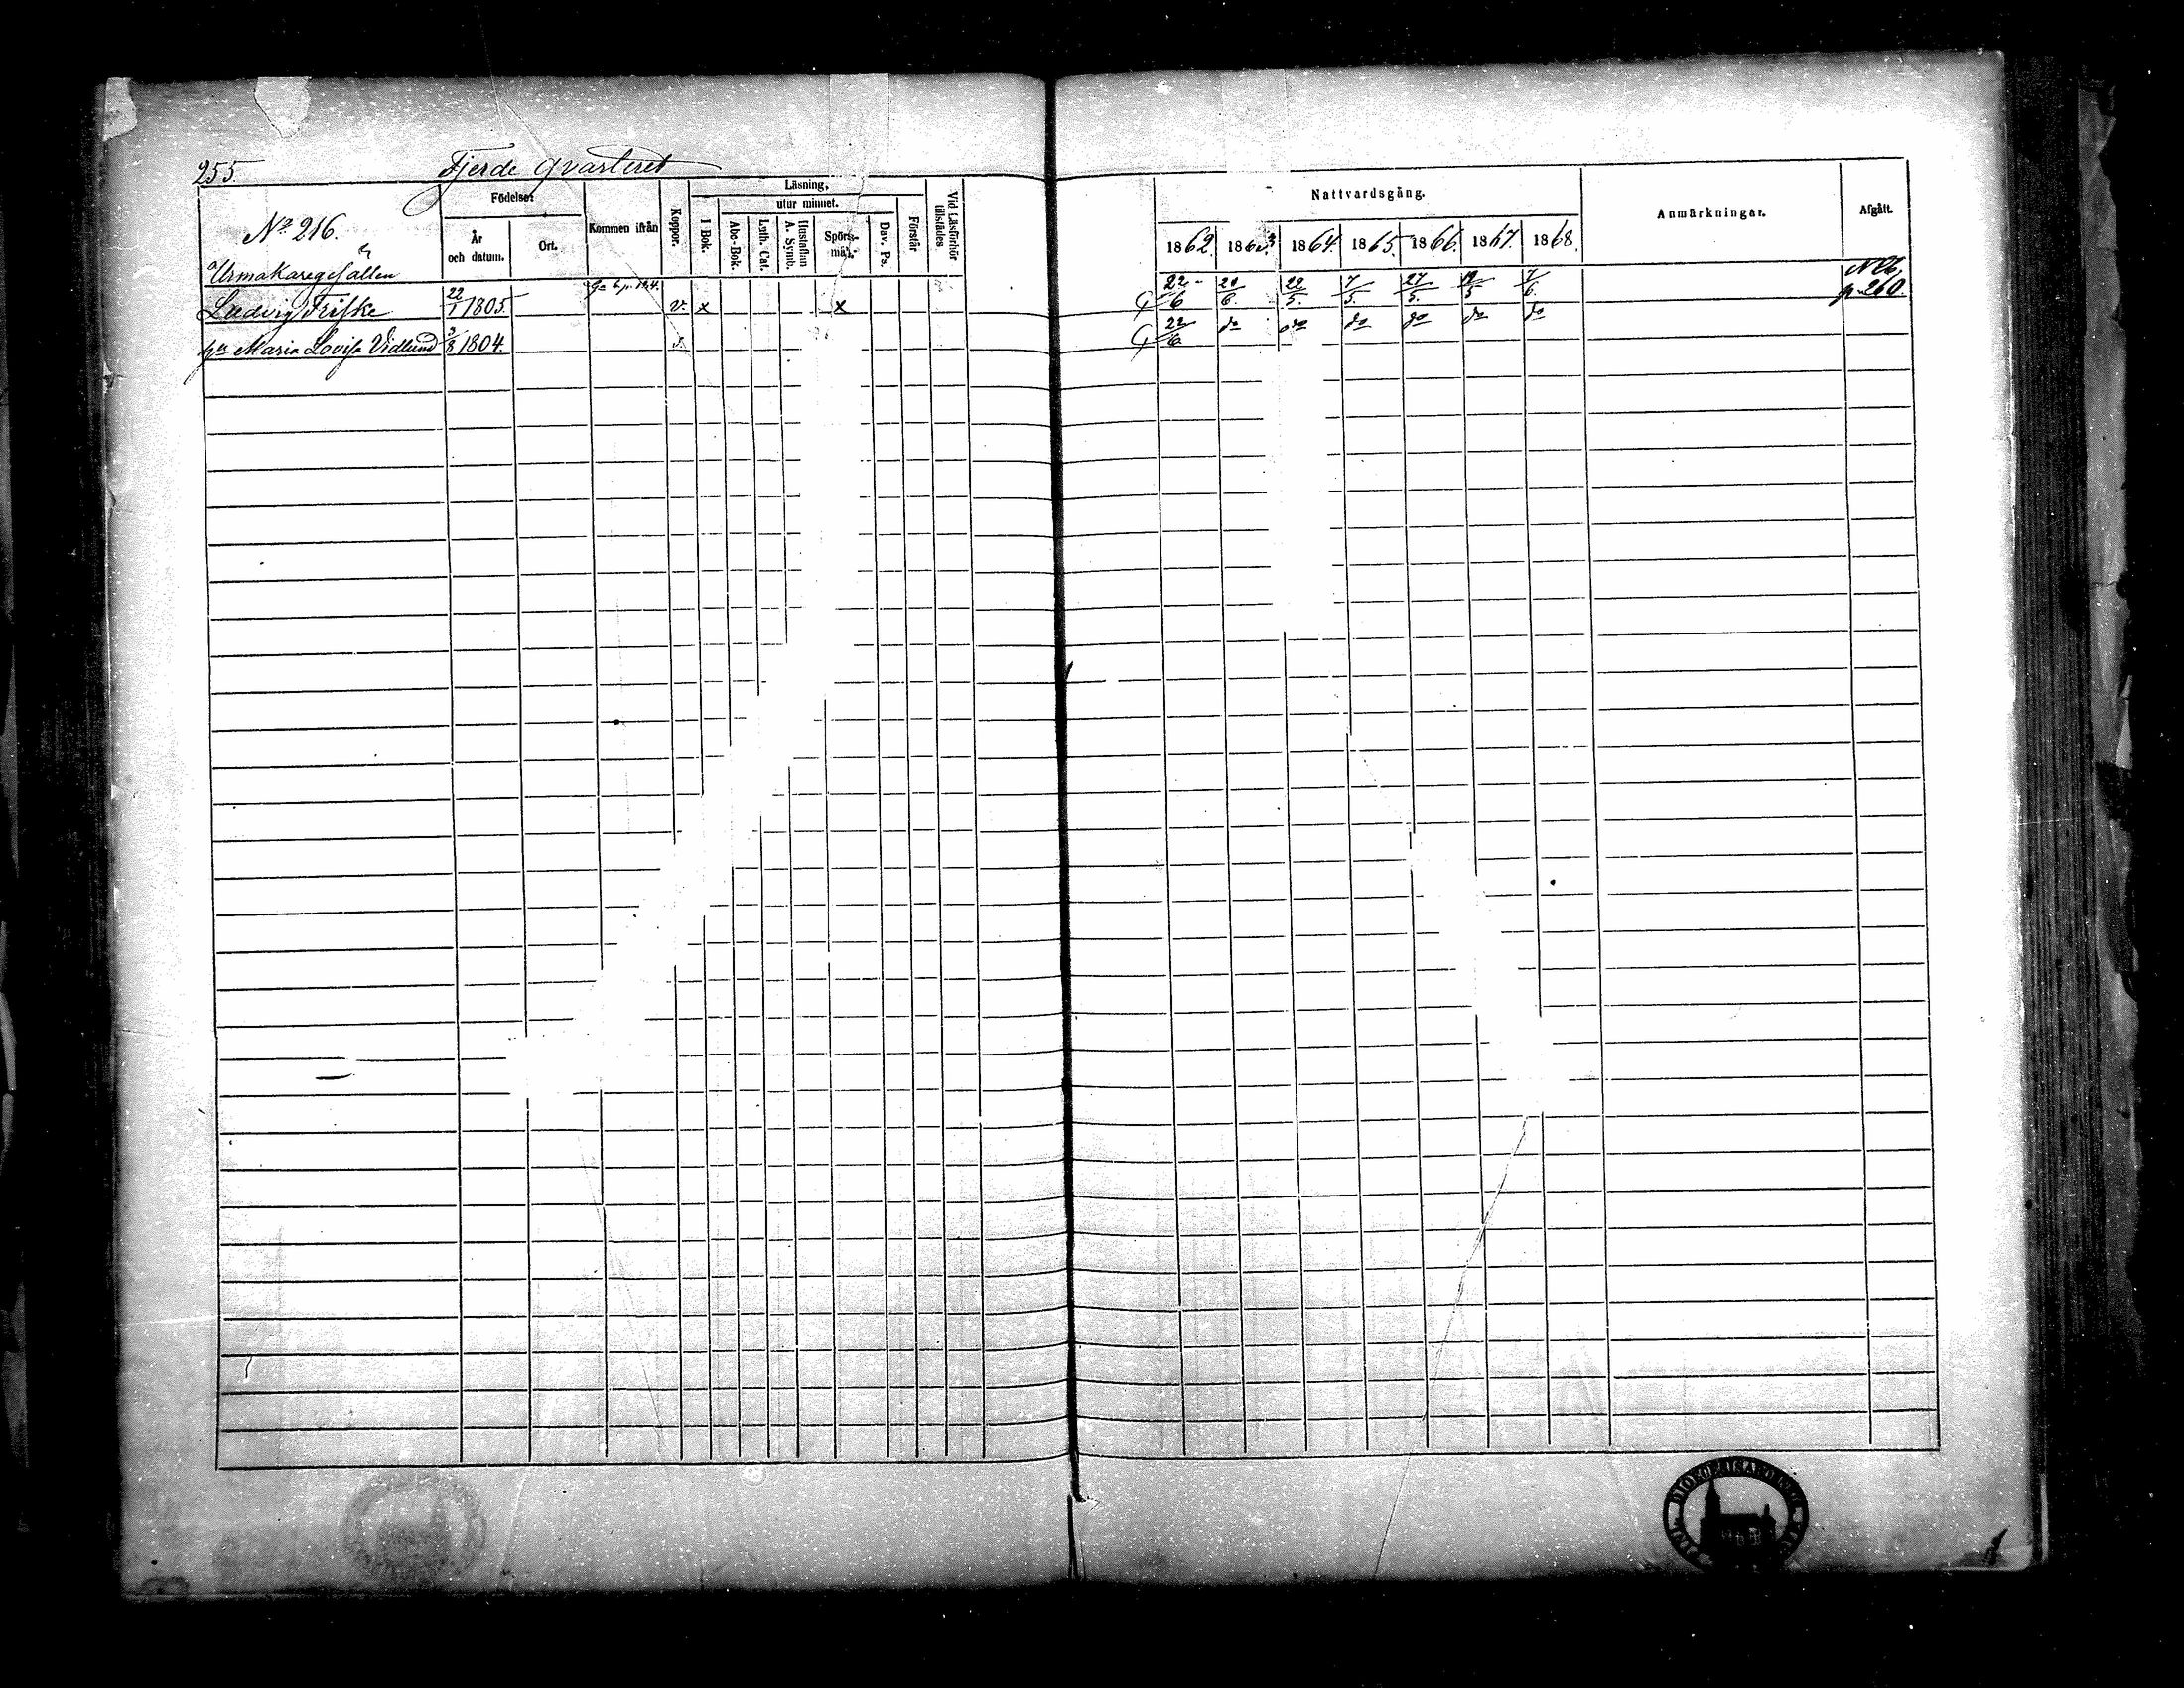 255
Fjerde qvarteret
Nº 216.
Födelse:
År och datum.
Ort.
Kommen ifrån
Koppor.
Läsning,
I Bok.
utur minnet.
Abc-Bok.
Luth. Cat.
Hustaflan
A. Symb.
Spörs-
mål.
Dav. Ps.
Förstår
Vid Läsförhör
tillstädes
Nattvardsgång.
1862. 1863 1864. 1865. 1866. 1867. 1868.
Anmärkningar.
Afgått.
Urmakaregesällen
Ludvig Friske 22/1 1805. v. x x G 22/6 21/6. 22/5. 7/5. 27/5. 19/5 7/6. p. 260.
hu Maria Lovisa Vidlund 3/8 1804. G 22/6 do do do do do do